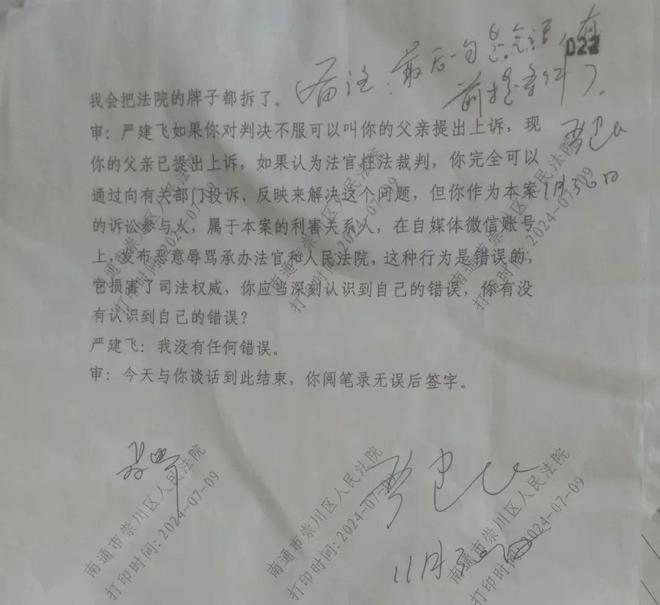 022
备注：最后一句忘记有
前提条件了
我会把法院的牌子都拆了。
审：严建飞如果你对判决不服可以叫你的父亲提出上诉，现
你的父亲已提出上诉，如果认为法官枉法裁判，你完全可以
通过向有关部门投诉，反映来解决这个问题，但你作为本案
的诉讼参与人，属于本案的利害关系人，在自媒体微信账号
上，发布恶意辱骂承办法官和人民法院，这种行为是错误的，
它损害了司法权威，你应当深刻认识到自己的错误，你有没
有认识到自己的错误？
严建飞：我没有任何错误。
审：今天与你谈话到此结束，你阅笔录无误后签字。
11月
南通市崇川区人民法院
打印时间：2024-07-09
南通市崇川区人民法院
打印时间：2024-07-09
南通市崇川区人民法院
打印时间：2024-07-09
南通市崇川区人民法院
打印时间：2024-07-09
南通市崇川区人民法院
打印时间：2024-07-09
南通市崇川区人民法院
打印时间：2024-07-09